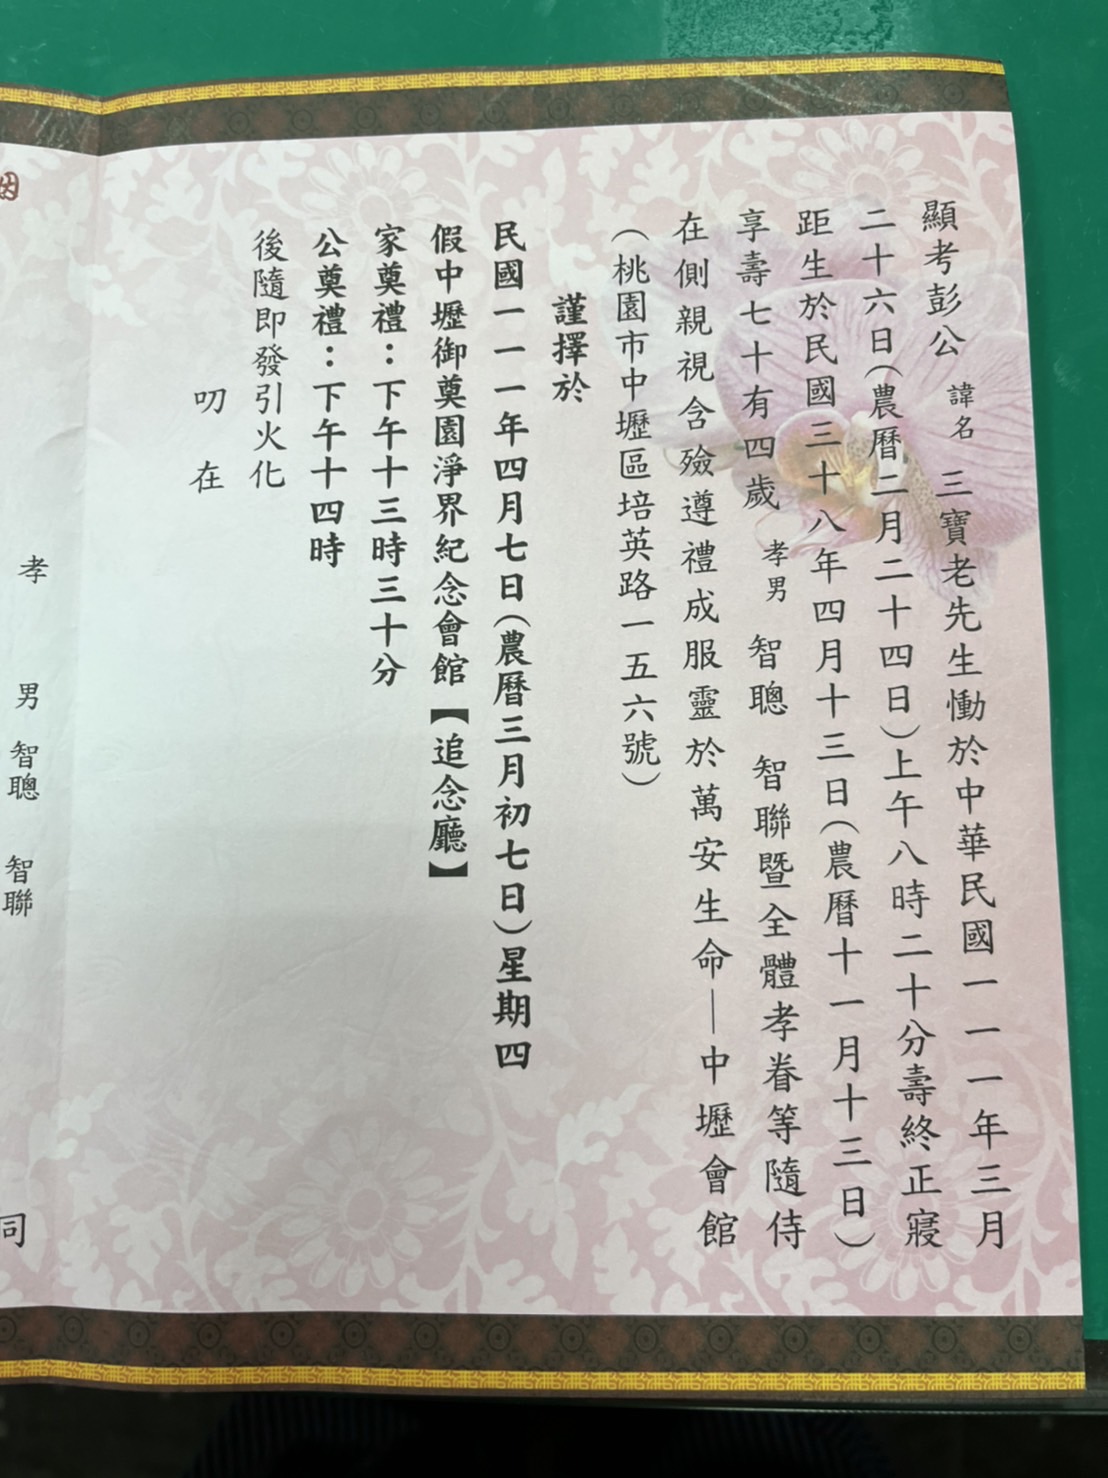 顯考彭公 諱名 三寶老先生慟於中華民國一一一年三月
二十六日(農曆二月二十四日)上午八時二十分壽終正寢
距生於民國三十八年四月十三日(農曆十一月十三日)
享壽七十有四歲 孝男 智聰 智聯暨全體孝眷等隨侍
在側親視含殮遵禮成服靈於萬安生命—中壢會館
(桃園市中壢區培英路一五六號)
謹擇於
民國一一一年四月七日(農曆三月初七日)星期四
假中壢御奠園淨界紀念會館【追念廳】
家奠禮:下午十三時三十分
公奠禮:下午十四時
後隨即發引火化
叨在
孝男 智聰 智聯
同